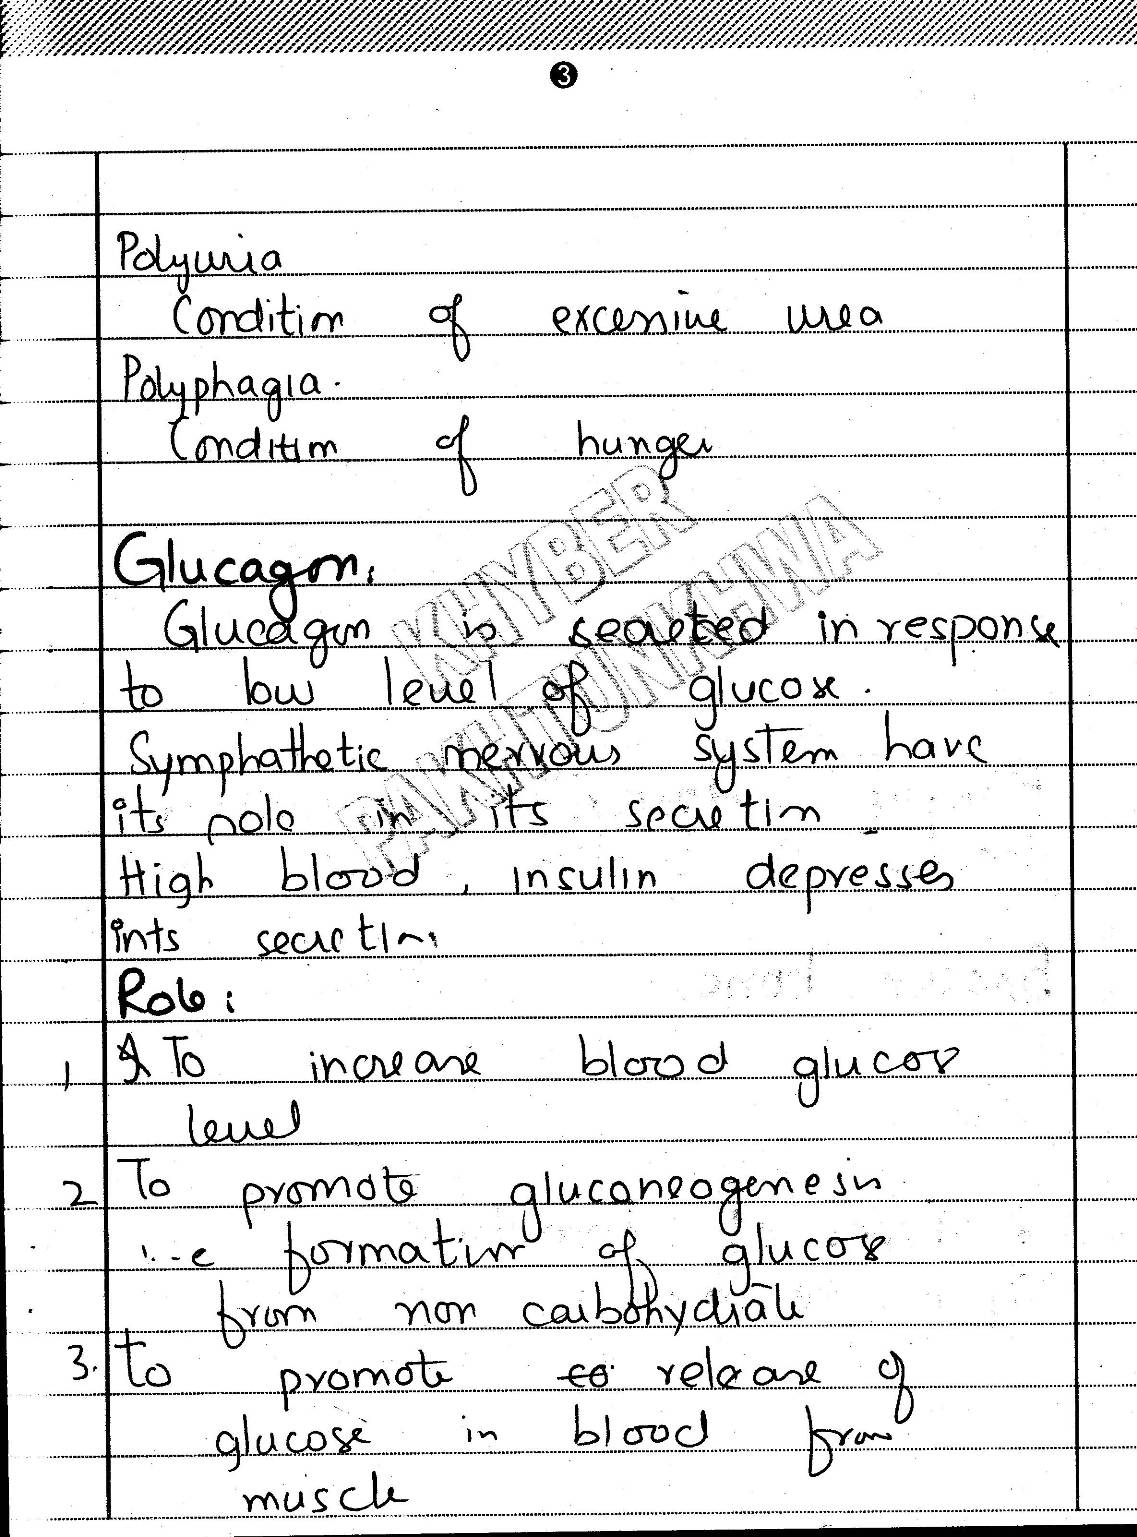 3
Polyuria
Condition of excessive urea
Polyphagia.
Condition of hunger
KHYBER
PAKHTUNKHWA
Glucagon:
Glucagon is secreted in response
to low level of glucose.
Symphathetic nervous system have
its role in its secretion
High blood, insulin depresses
ints secretion
Role:
1 To increase blood glucose
level
2 To promote gluconeogenesis
i.e formation of glucose
from non carbohydrate
3. To promote to release of
glucose in blood from
muscle